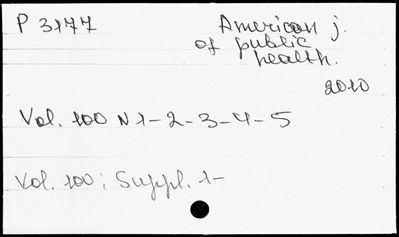 P 3177
American j.
of public
health.
2010
Vol. 100 N 1-2-3-4-5
Vol. 100; Suppl. 1-